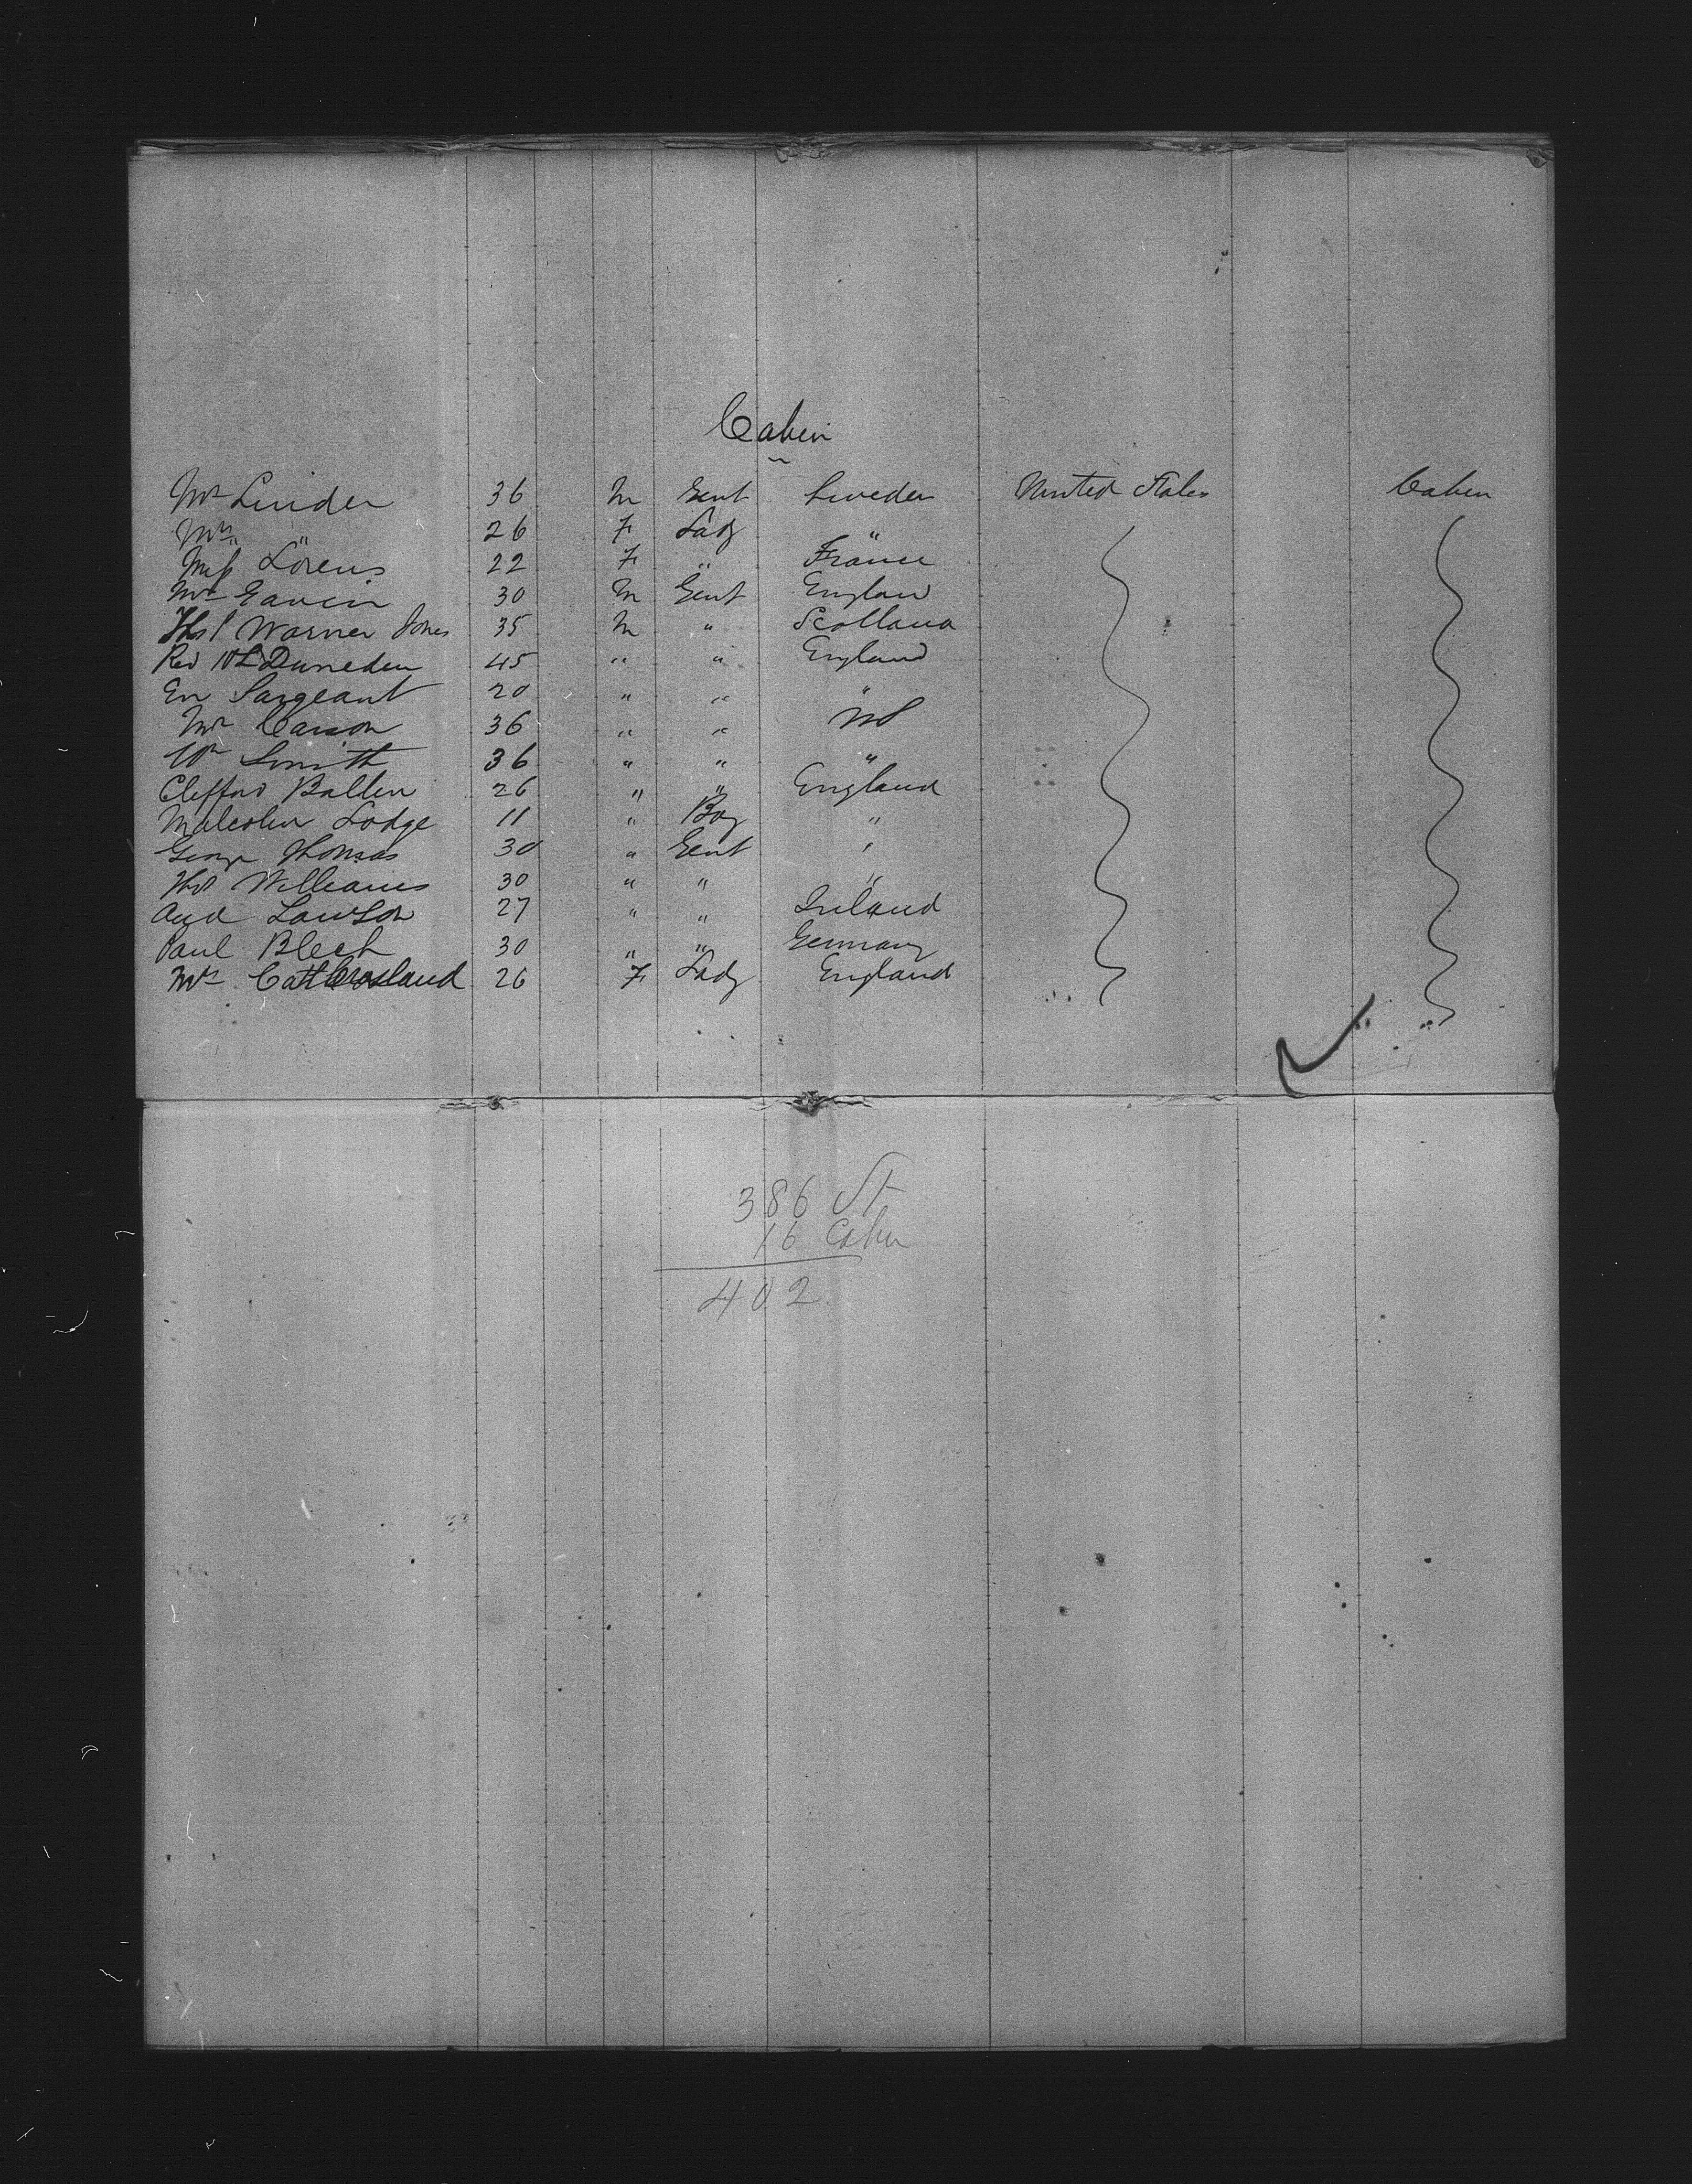 Cabin
Mr Linder 36 M Gent Sweden United States Cabin
Mrs " 26 F Lady "
Miss Lorens 22 F " France
Mr Gavin 30 M Gent England
Thos Warner Jones 35 M " Scotland
Rev Duneden 45 " " England
Sargeant 20 " " "
Mr Carson 36 " " US
Wm Smith 36 " " "
Clifford Ballen 26 " " England
Malcolm Lodge 11 " Boy "
George Thomas 30 " Gent "
Thos Williams 30 " " "
And Lawson 27 " " Ireland
Paul Blech 30 " " Germany
Mrs Crosland 26 F Lady England
386 St
16 Cabin
402